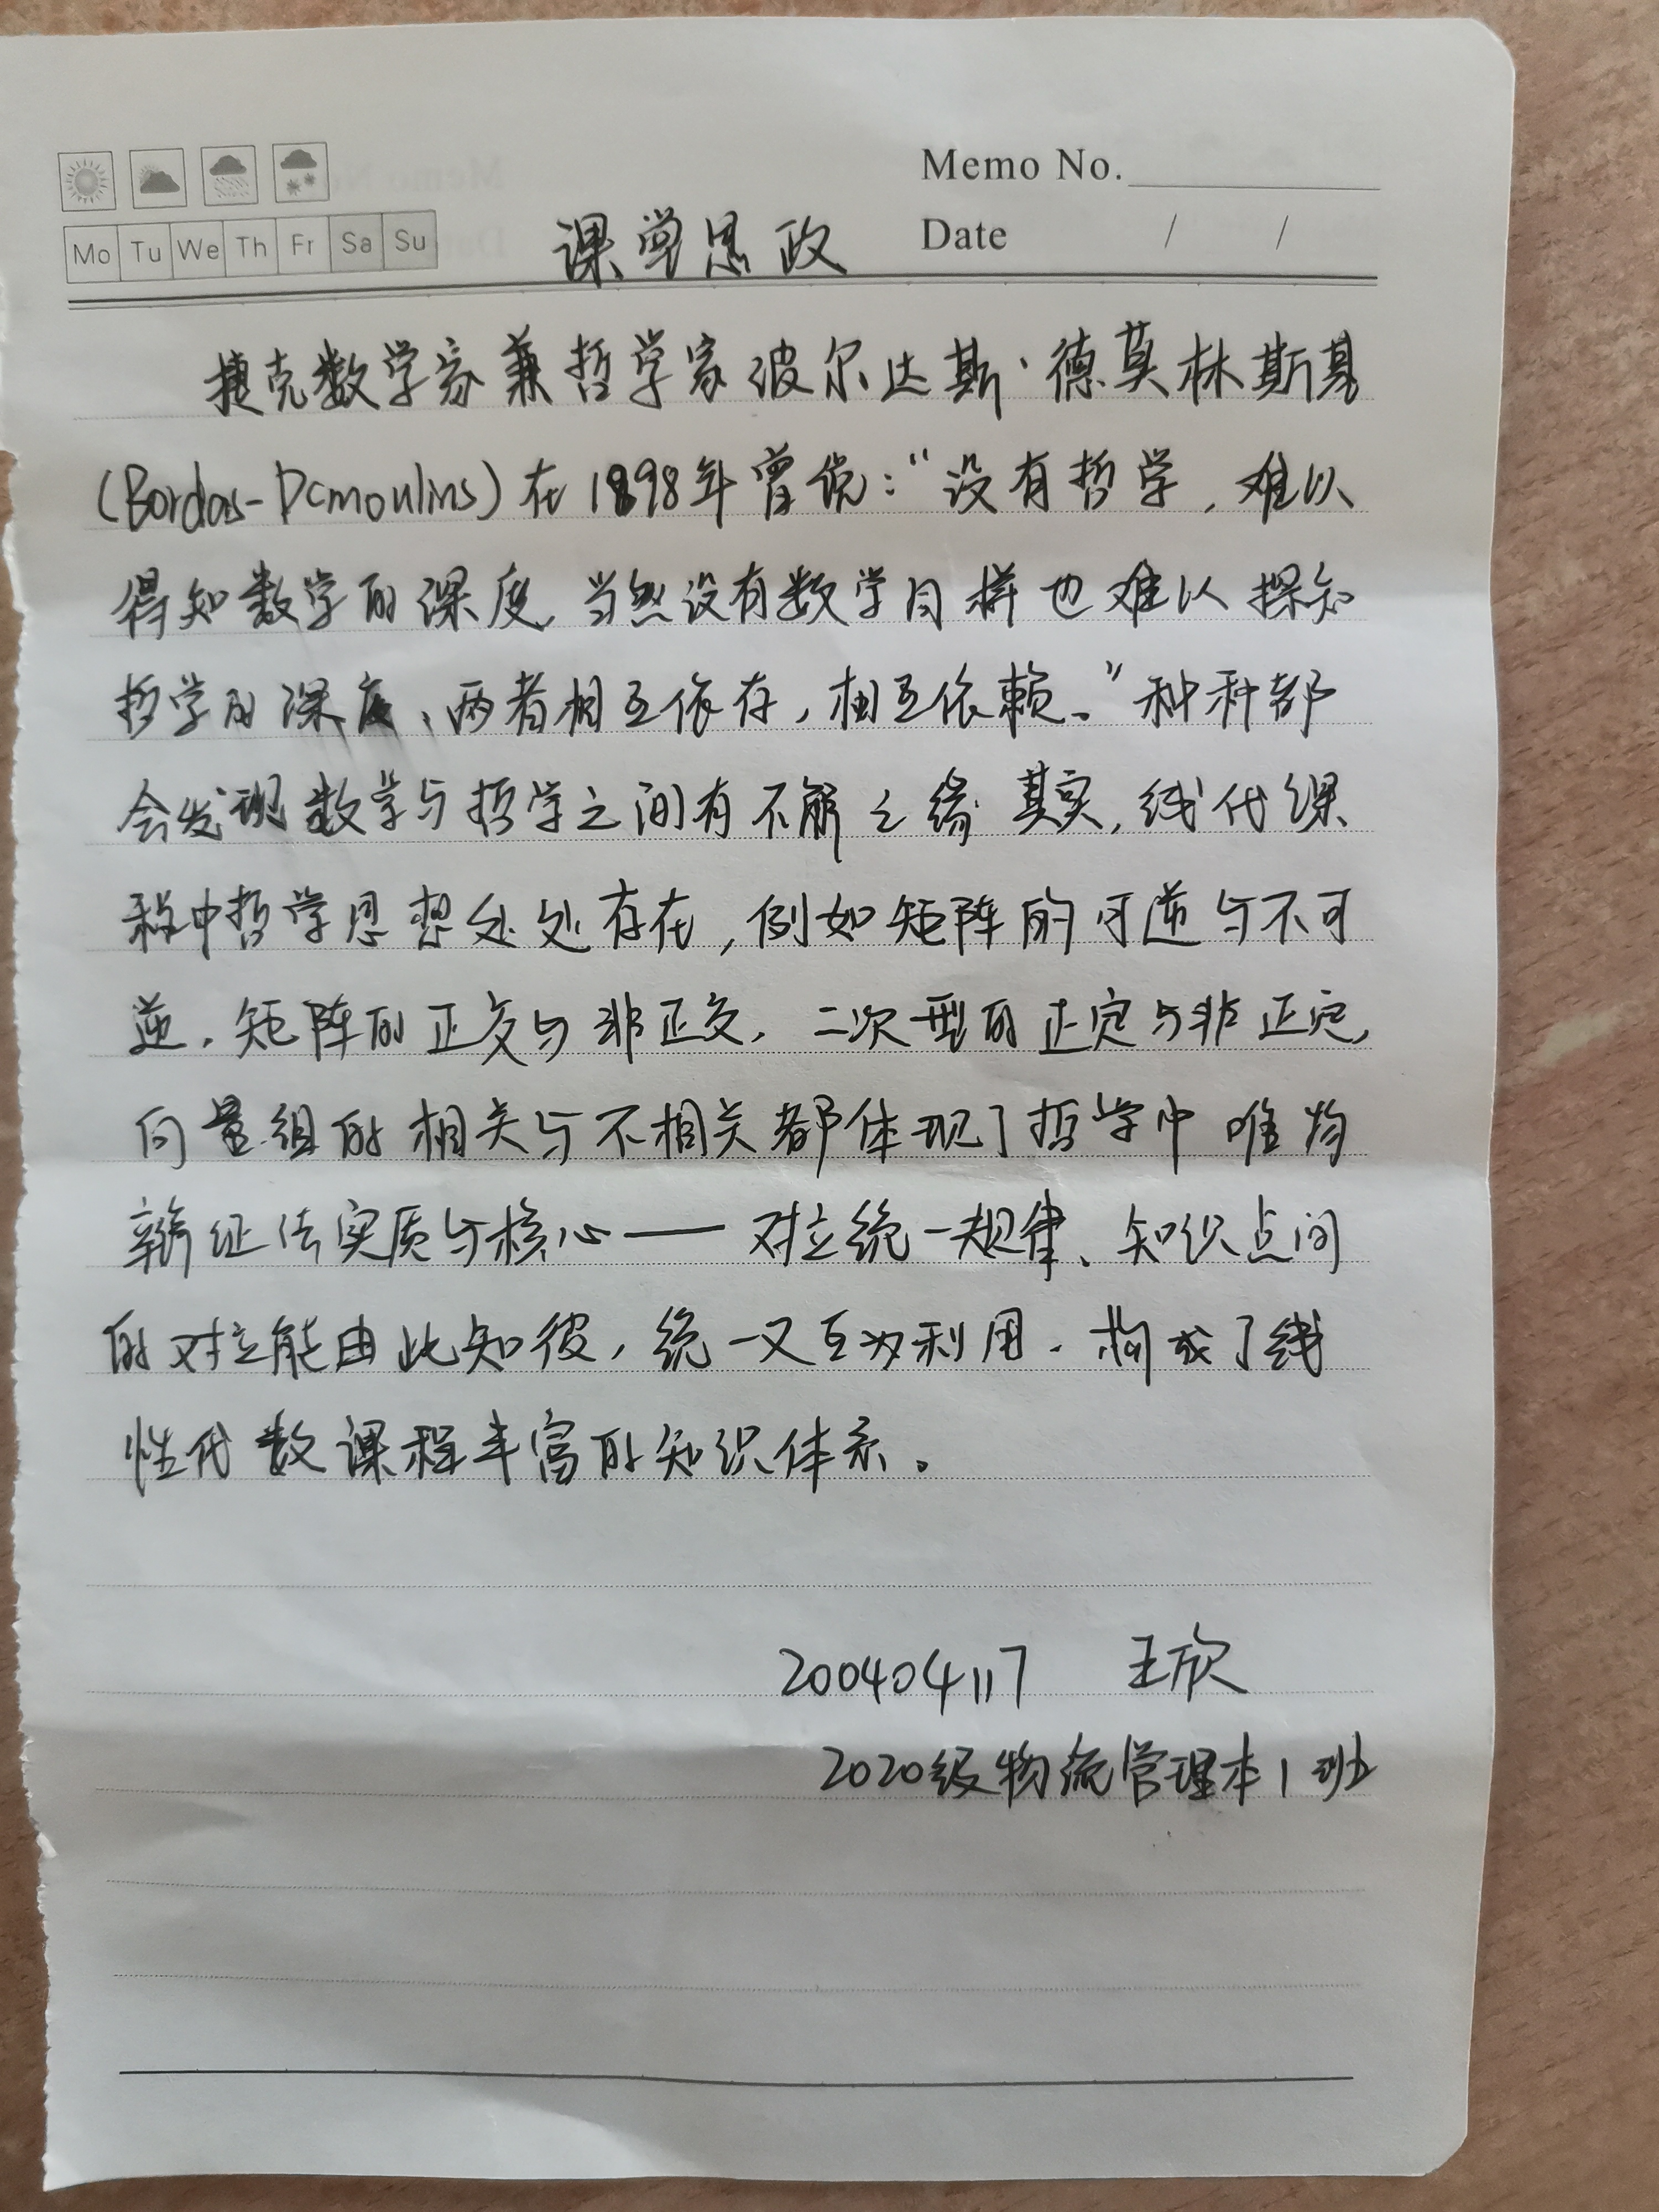 Memo No.
Mo Tu We Th Fr Sa Su
Date / /
课堂思政
捷克数学家兼哲学家波尔达斯·德莫林斯基
(Bordas-Demoulins)在1898年曾说:“没有哲学,难以
得知数学的深度,当然没有数学同样也难以探知
哲学的深度、两者相互依存,相互依赖。”种种都
会发现数学与哲学之间有不解之缘.其实,线代课
程中哲学思想处处存在,例如矩阵的可逆与不可
逆.矩阵的正交与非正交.二次型的正定与非正定,
向量组的相关与不相关都体现了哲学中唯物
辩证法实质与核心——对立统一规律、知识点间
的对立能由此知彼,统一又互为利用.构成了线
性代数课程丰富的知识体系。
200404117 王欣
2020级物流管理本1班